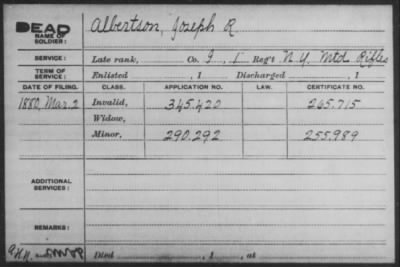 DEAD Albertson, Joseph R.
NAME OF SOLDIER:
SERVICE: Late rank, Co. G, 1 Reg't N.Y. Mtd Rifles
TERM OF SERVICE: Enlisted , 1 Discharged , 1
DATE OF FILING. CLASS. APPLICATION NO. LAW. CERTIFICATE NO.
1880, Mar. 2 Invalid, 345.420 265.715
Widow,
Minor, 290.292 255.989
ADDITIONAL SERVICES:
REMARKS:
Died , 1 , at